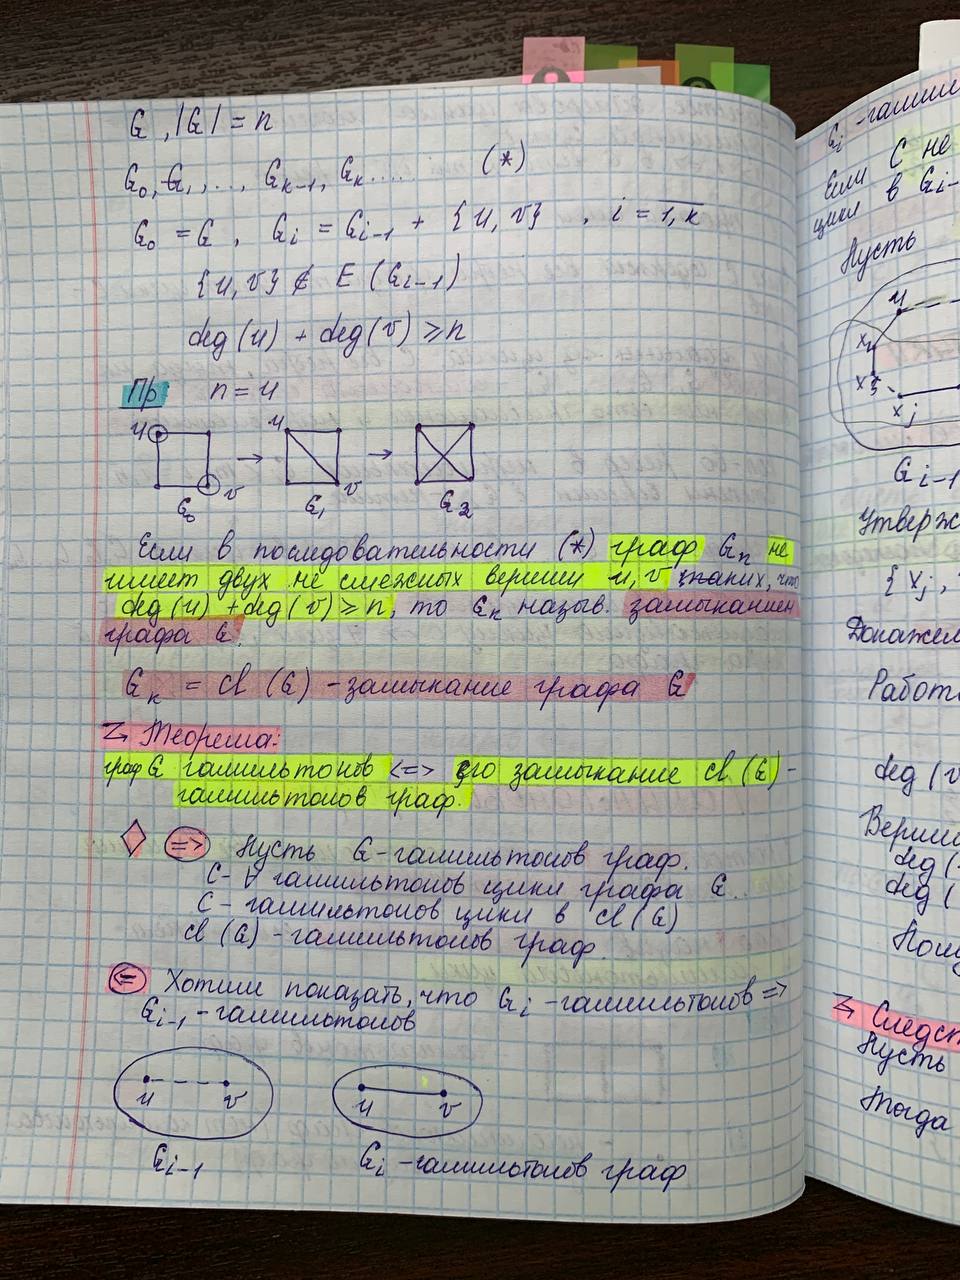 G , |G| = n
G₀, G₁, ..., Gₖ₋₁, Gₖ..... (*)
G₀ = G , Gᵢ = Gᵢ₋₁ + {u, v} , i = 1, k
{u, v} ∉ E (Gᵢ₋₁)
deg (u) + deg (v) ≥ n
Пр n = 4
u u
v v
G₀ G₁ G₂
Если в последовательности (*) граф Gₙ не
имеет двух не смежных вершин u, v таких, что
deg (u) + deg (v) ≥ n, то Gₖ назыв. замыканием
графа G.
Gₖ = cl (G) - замыкание графа G
Теорема:
граф G гамильтонов <=> его замыкание cl (G) -
гамильтонов граф.
◊ => Пусть G - гамильтонов граф.
C - ∀ гамильтонов цикл графа G.
C - гамильтонов цикл в cl (G)
cl (G) - гамильтонов граф.
<= Хотим показать, что Gᵢ - гамильтонов =>
Gᵢ₋₁ - гамильтонов
u v u v
Gᵢ₋₁ Gᵢ - гамильтонов граф
Gᵢ - гамиль
Если C не
цикл в Gᵢ₋
Пусть
u
x
x
xⱼ
Gᵢ₋₁
Утверж
{xⱼ,
Докажем
Работ
deg (v
Верши
deg (
deg (
Полу
Следст
Пусть
Тогда